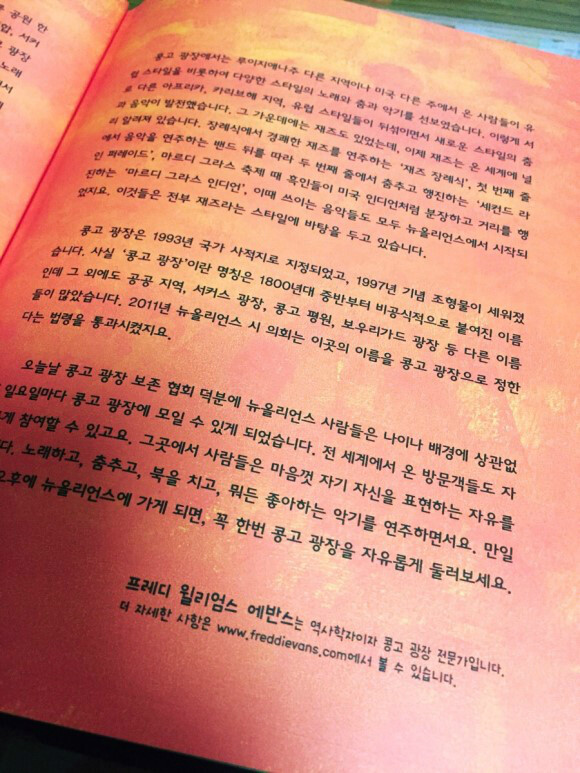 공원 한
합, 서커
광장
노래
콩고 광장에서는 루이지애나주 다른 지역이나 미국 다른 주에서 온 사람들이 유
럽 스타일을 비롯하여 다양한 스타일의 노래와 춤과 악기를 선보였습니다. 이렇게 서
로 다른 아프리카, 카리브해 지역, 유럽 스타일들이 뒤섞이면서 새로운 스타일의 춤
과 음악이 발전했습니다. 그 가운데에는 재즈도 있었는데, 이제 재즈는 온 세계에 널
리 알려져 있습니다. 장례식에서 경쾌한 재즈를 연주하는 '재즈 장례식', 첫 번째 줄
에서 음악을 연주하는 밴드 뒤를 따라 두 번째 줄에서 춤추고 행진하는 '세컨드 라
인 퍼레이드', 마르디 그라스 축제 때 흑인들이 미국 인디언처럼 분장하고 거리를 행
진하는 '마르디 그라스 인디언', 이때 쓰이는 음악들도 모두 뉴올리언스에서 시작되
었지요. 이것들은 전부 재즈라는 스타일에 바탕을 두고 있습니다.
콩고 광장은 1993년 국가 사적지로 지정되었고, 1997년 기념 조형물이 세워졌
습니다. 사실 '콩고 광장'이란 명칭은 1800년대 중반부터 비공식적으로 붙여진 이름
인데 그 외에도 공공 지역, 서커스 광장, 콩고 평원, 보우리가드 광장 등 다른 이름
들이 많았습니다. 2011년 뉴올리언스 시 의회는 이곳의 이름을 콩고 광장으로 정한
다는 법령을 통과시켰지요.
오늘날 콩고 광장 보존 협회 덕분에 뉴올리언스 사람들은 나이나 배경에 상관없
일요일마다 콩고 광장에 모일 수 있게 되었습니다. 전 세계에서 온 방문객들도 자
게 참여할 수 있고요. 그곳에서 사람들은 마음껏 자기 자신을 표현하는 자유를
다. 노래하고, 춤추고, 북을 치고, 뭐든 좋아하는 악기를 연주하면서요. 만일
오후에 뉴올리언스에 가게 되면, 꼭 한번 콩고 광장을 자유롭게 둘러보세요.
프레디 윌리엄스 에반스는 역사학자이자 콩고 광장 전문가입니다.
더 자세한 사항은 www.freddievans.com에서 볼 수 있습니다.